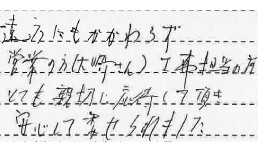 遠方にもかかわらず
営業の方(大崎さん)工事担当の方
とても親切に応対して頂き
安心して任せられました